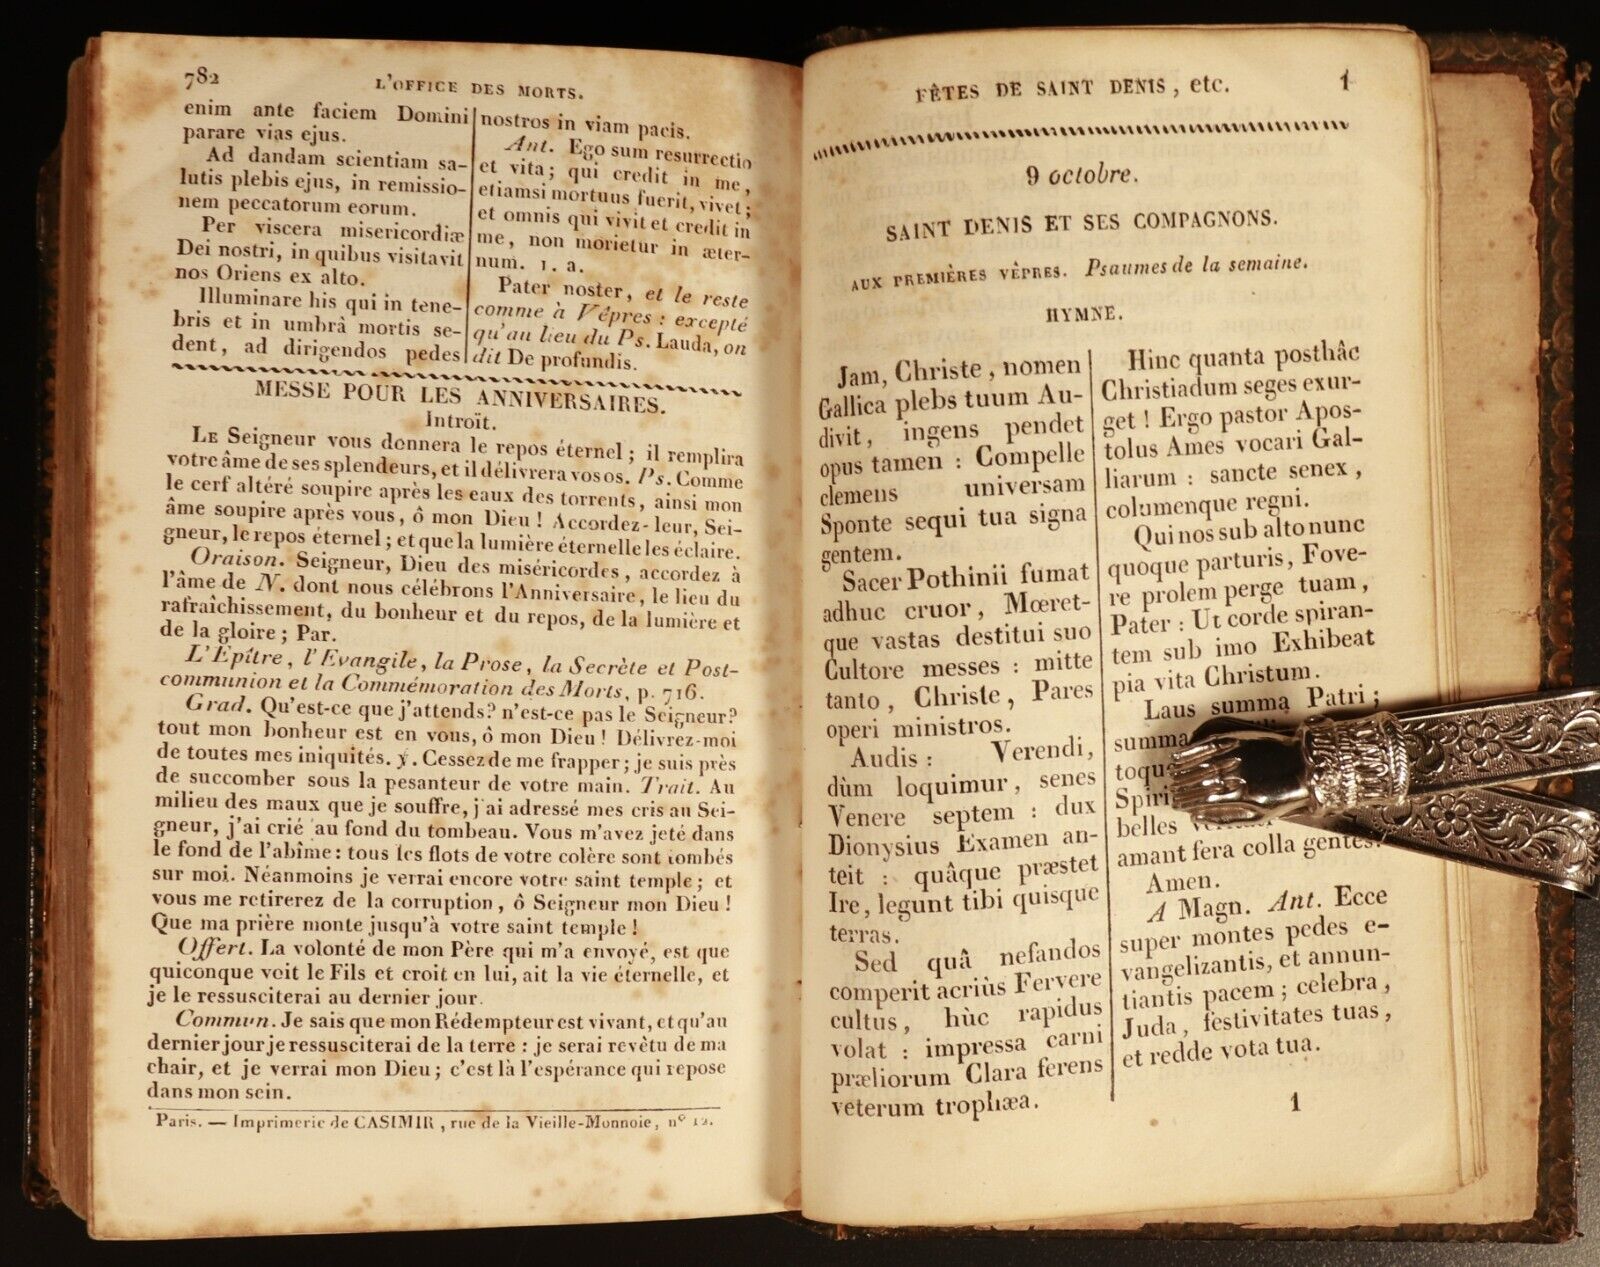 782
L'OFFICE DES MORTS.
enim ante faciem Domini
parare vias ejus.
Ad dandam scientiam sa-
lutis plebis ejus, in remissio-
nem peccatorum eorum.
Per viscera misericordiæ
Dei nostri, in quibus visitavit
nos Oriens ex alto.
Illuminare his qui in tene-
bris et in umbrâ mortis se-
dent, ad dirigendos pedes
nostros in viam pacis.
Ant. Ego sum resurrectio
et vita; qui credit in me,
etiamsi mortuus fuerit, vivet;
et omnis qui vivit et credit in
me, non morietur in æter-
num. 1. a.
Pater noster, et le reste
comme à Vêpres : excepté
qu'au lieu du Ps. Lauda, on
dit De profundis.
MESSE POUR LES ANNIVERSAIRES.
Introït.
LE Seigneur vous donnera le repos éternel; il remplira
votre âme de ses splendeurs, et il délivrera vos os. Ps. Comme
le cerf altéré soupire après les eaux des torrents, ainsi mon
âme soupire après vous, ô mon Dieu! Accordez-leur, Sei-
gneur, le repos éternel; et que la lumière éternelle les éclaire.
Oraison. Seigneur, Dieu des miséricordes, accordez à
l'âme de N. dont nous célébrons l'Anniversaire, le lieu du
rafraîchissement, du bonheur et du repos, de la lumière et
de la gloire; Par.
L'Epître, l'Evangile, la Prose, la Secrète et Post-
communion et la Commémoration des Morts, p. 716.
Grad. Qu'est-ce que j'attends? n'est-ce pas le Seigneur?
tout mon bonheur est en vous, ô mon Dieu! Délivrez-moi
de toutes mes iniquités. ℣. Cessez de me frapper; je suis près
de succomber sous la pesanteur de votre main. Trait. Au
milieu des maux que je souffre, j'ai adressé mes cris au Sei-
gneur, j'ai crié au fond du tombeau. Vous m'avez jeté dans
le fond de l'abîme: tous les flots de votre colère sont tombés
sur moi. Néanmoins je verrai encore votre saint temple; et
vous me retirerez de la corruption, ô Seigneur mon Dieu!
Que ma prière monte jusqu'à votre saint temple!
Offert. La volonté de mon Père qui m'a envoyé, est que
quiconque voit le Fils et croit en lui, ait la vie éternelle, et
je le ressusciterai au dernier jour.
Commun. Je sais que mon Rédempteur est vivant, et qu'au
dernier jour je ressusciterai de la terre : je serai revêtu de ma
chair, et je verrai mon Dieu; c'est là l'espérance qui repose
dans mon sein.
Paris. — Imprimerie de CASIMIR, rue de la Vieille-Monnoie, nº 12.
FÊTES DE SAINT DENIS, etc.
1
9 octobre.
SAINT DENIS ET SES COMPAGNONS.
AUX PREMIÈRES VÊPRES. Psaumes de la semaine.
HYMNE.
Jam, Christe, nomen
Gallica plebs tuum Au-
divit, ingens pendet
opus tamen : Compelle
clemens universam
Sponte sequi tua signa
gentem.
Sacer Pothinii fumat
adhuc cruor, Mœret-
que vastas destitui suo
Cultore messes : mitte
tanto, Christe, Pares
operi ministros.
Audis : Verendi,
dùm loquimur, senes
Venere septem : dux
Dionysius Examen an-
teit : quâque præstet
Ire, legunt tibi quisque
terras.
Sed quâ nefandos
comperit acriùs Fervere
cultus, hùc rapidus
volat : impressa carni
præliorum Clara ferens
veterum trophæa.
Hinc quanta posthâc
Christiadum seges exur-
get! Ergo pastor Apos-
tolus Ames vocari Gal-
liarum : sancte senex,
columenque regni.
Qui nos sub alto nunc
quoque parturis, Fove-
re prolem perge tuam,
Pater : Ut corde spiran-
tem sub imo Exhibeat
pia vita Christum.
Laus summa Patri;
summa
Spiri
belles
amant fera colla gentes.
Amen.
A Magn. Ant. Ecce
super montes pedes e-
vangelizantis, et annun-
tiantis pacem; celebra,
Juda, festivitates tuas,
et redde vota tua.
1